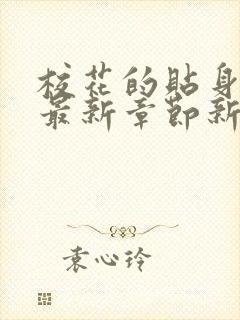 校花的贴身
最新章节新
袁心玲